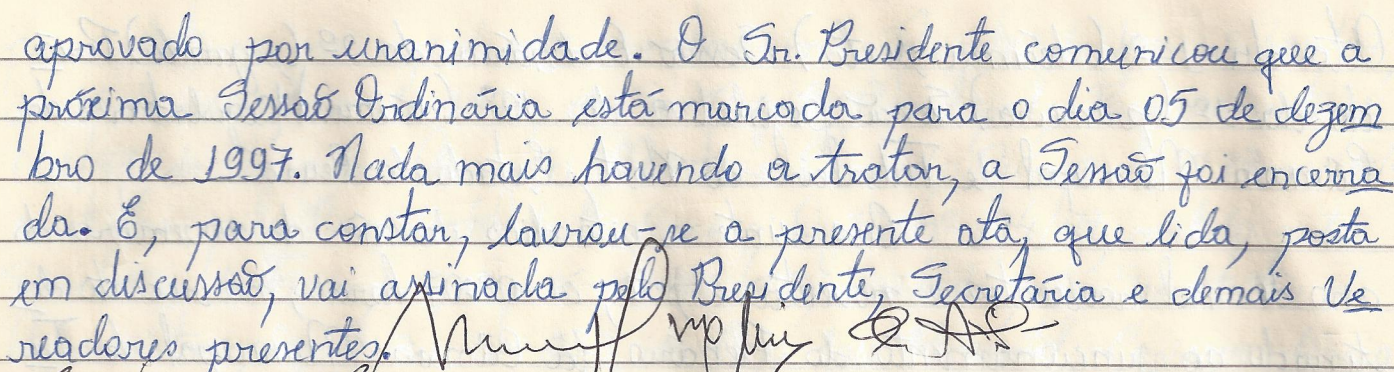 aprovado por unanimidade. O Sr. Presidente comunicou que a
próxima Sessão Ordinária está marcada para o dia 05 de dezem
bro de 1997. Nada mais havendo a tratar, a Sessão foi encerra
da. E, para constar, lavrou-se a presente ata, que lida, posta
em discussão, vai assinada pelo Presidente, Secretária e demais Ve
readores presentes.